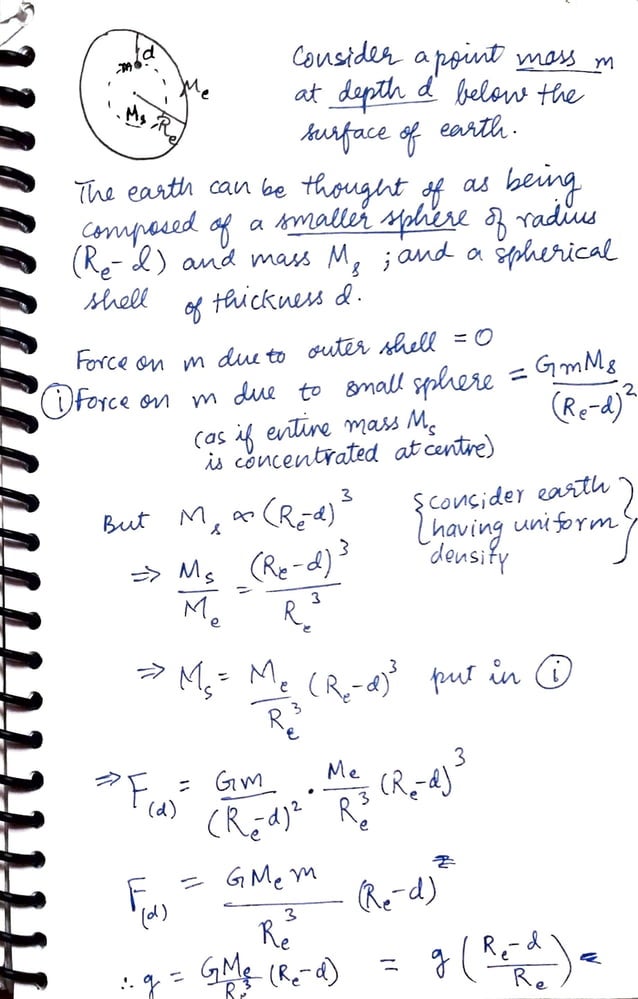 d
m
Me
Ms
Re
Consider a point mass m
at depth d below the
surface of earth.
The earth can be thought of as being
composed of a smaller sphere of radius
(Re-d) and mass Ms ; and a spherical
shell of thickness d.
Force on m due to outer shell = 0
(i) Force on m due to small sphere = GmMs/(Re-d)²
(as if entire mass Ms
is concentrated at centre)
But Ms ∝ (Re-d)³ {consider earth
having uniform
density}
⇒ Ms/Me = (Re-d)³/Re³
⇒ Ms = Me/Re³ (Re-d)³ put in (i)
⇒ F(d) = Gm/(Re-d)² · Me/Re³ (Re-d)³
F(d) = GMem/Re³ (Re-d)
∴ g = GMe/Re³ (Re-d) = g (Re-d/Re)